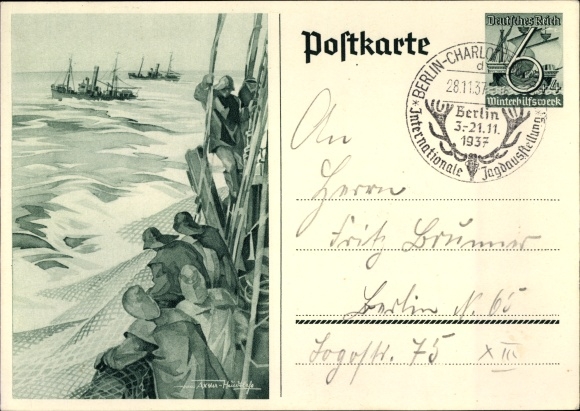 Postkarte
Deutsches Reich
6 4
Winterhilfswerk
BERLIN-CHARLO
d
28.11.37
Berlin
3.-21.11.
1937
*Internationale Jagdausstellung*
An
Herrn
Fritz Brunner
Berlin N. 65
Togostr. 75 XIII